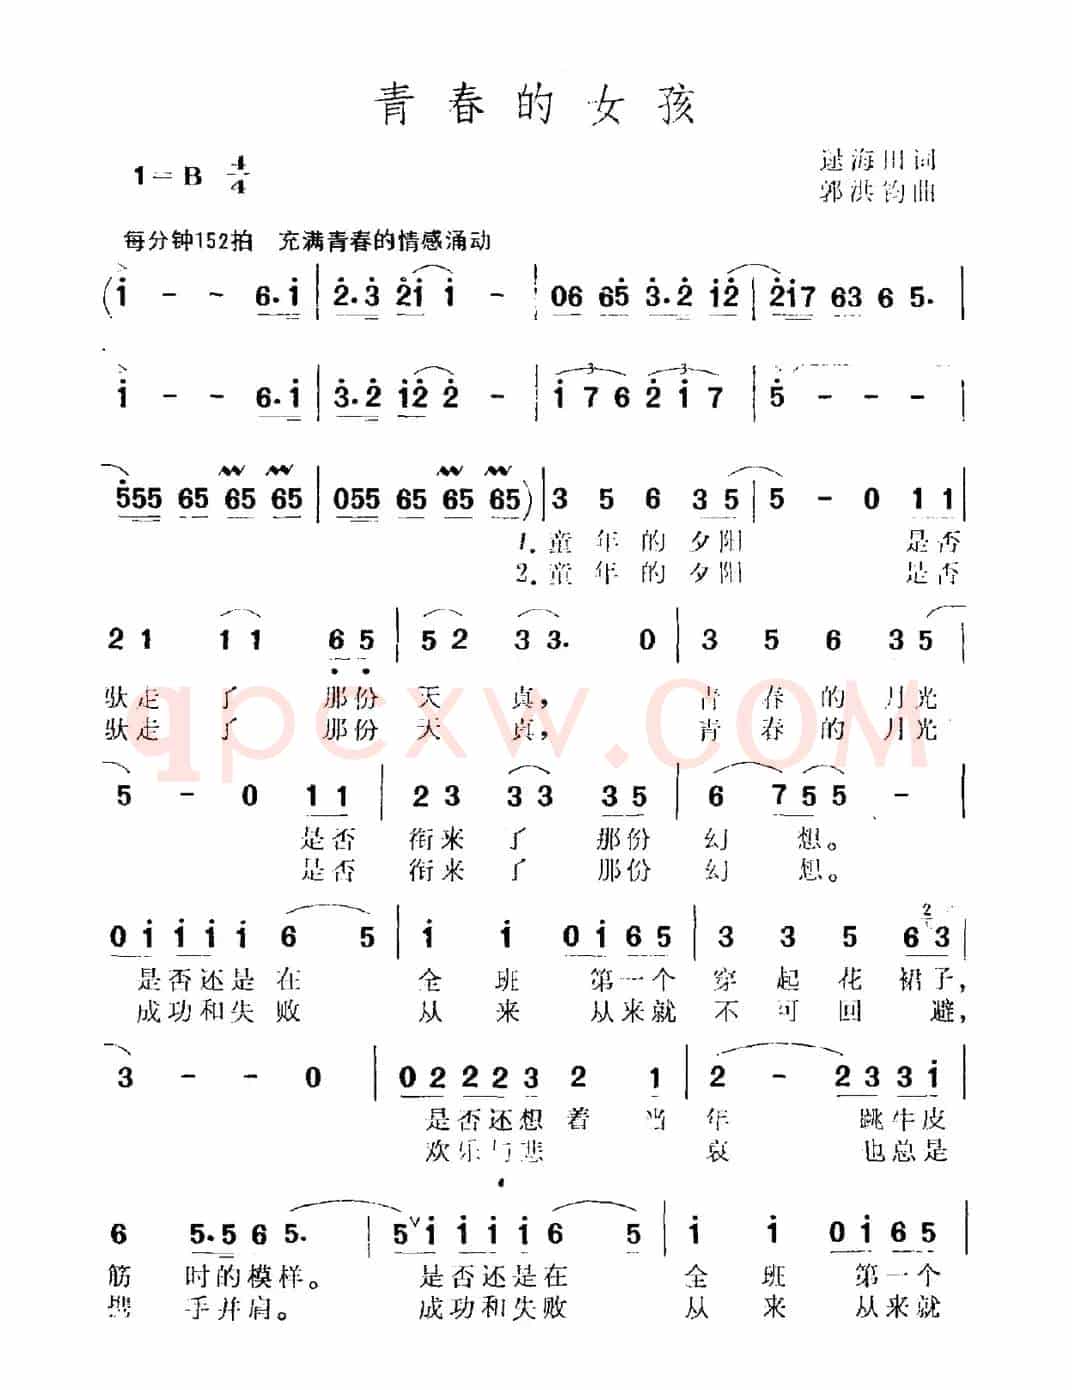 青春的女孩
1=B 4/4
逯海田词
郭洪钧曲
每分钟152拍 充满青春的情感涌动
(i - - 6.i | 2.3 2i i - | 06 65 3.2 i2 | 2i7 63 6 5. |
i - - 6.i | 3.2 i2 2 - | i 7 6 2 i 7 | 5 - - - |
555 65 65 65 | 055 65 65 65) | 3 5 6 3 5 | 5 - 0 1 1 |
1.童年的夕阳 是否
2.童年的夕阳 是否
2 1 1 1 6 5 | 5 2 3 3. 0 | 3 5 6 3 5 |
驮走了那份天真, 青春的月光
驮走了那份天真, 青春的月光
qpcxw.com
5 - 0 1 1 | 2 3 3 3 3 5 | 6 7 5 5 - |
是否 衔来了那份幻想。
是否 衔来了那份幻想。
0 i i i i 6 5 | i i 0 i 6 5 | 3 3 5 2 6 3 |
是否还是在 全班 第一个穿起花裙子,
成功和失败 从来 从来就不可回避,
3 - - 0 | 0 2 2 2 3 2 1 | 2 - 2 3 3 i |
是否还想着当年 跳牛皮
欢乐与悲 哀 也总是
6 5.5 6 5. | 5 i i i i 6 5 | i i 0 i 6 5 |
筋 时的模样。 是否还是在 全班 第一个
携 手并肩。 成功和失败 从来 从来就